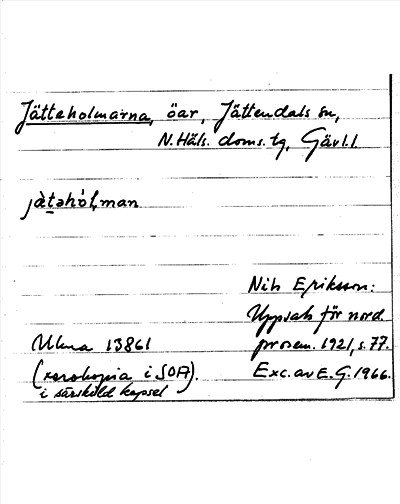 Jätteholmarna, öar, Jättendals sn,
N. Häls. doms. tg, Gävl. l
jä̀təhòl,man
Nils Eriksson:
Uppsats för nord.
Ulma 13861
prosem. 1921, s. 77.
(xerokopia i SOA).
Exc. av E. G. 1966.
i särskild kapsel